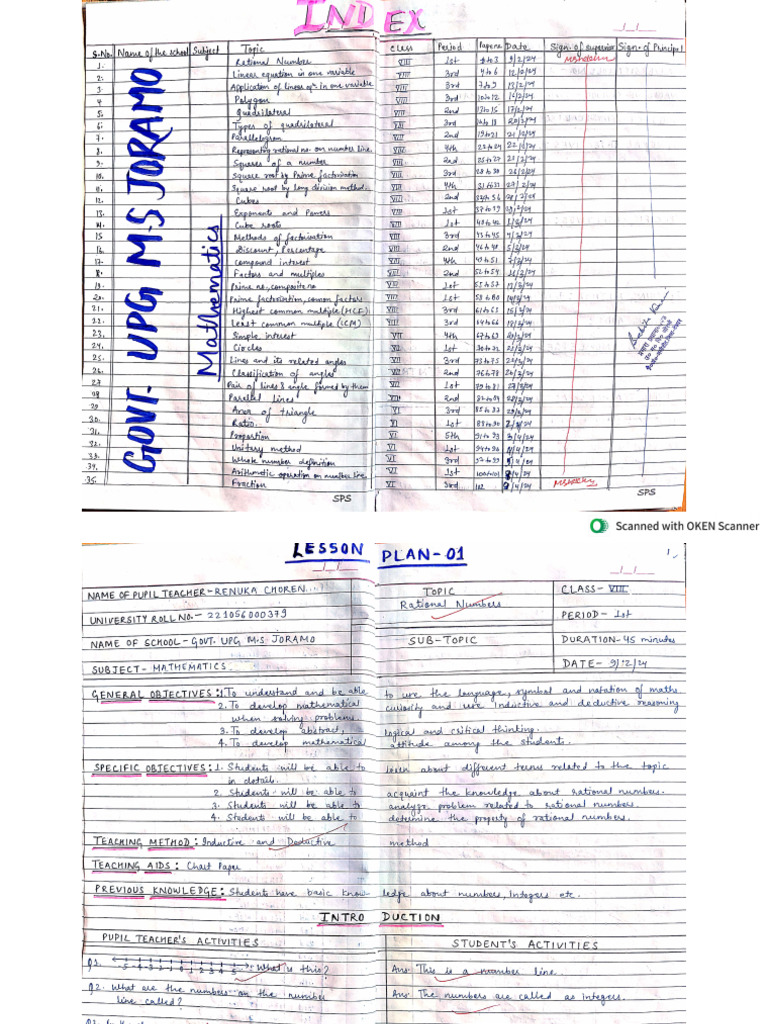 INDEX
S.No. Name of the school Subject Topic Class Period Date Sign. of superior Sign. of Principal
GOVT. UPG M.S JORAMO
Mathematics
1. Rational Number VIII 1st 9/2/24
2. Linear equation in one variable VIII 3rd 4 to 6 12/2/24
3. Application of linear eqn in one variable VIII 2nd 7 to 9 13/2/24
4. Polygon VIII 3rd 10 to 12
5. Quadrilateral VIII 2nd 13 to 15 17/2/24
6. Types of quadrilateral VIII 3rd 16 to 18 20/2/24
7. Parallelogram VIII 2nd 19 to 21 21/2/24
8. Representing rational no. on number line. VIII 4th 22 to 24 22/2/24
9. Squares of a number VIII 2nd 25 to 27
10. Square root by Prime factorisation VIII 3rd 28 to 30 26/2/24
11. Square root by long division method. VIII 4th 31 to 33 27/2/24
12. Cubes VIII 2nd 34 to 36
13. Exponents and Powers VIII 1st 37 to 39 29/2/24
14. Cube roots VIII 1st 40 to 42
15 Methods of factorisation VIII 3rd 43 to 45
16. Discount, Percentage VIII 2nd 46 to 48 5/3/24
17. Compound interest VIII 4th 49 to 51
18. Factors and multiples 2nd 52 to 54
19. Prime no., composite no 1st 55 to 57
20. Prime factorisation, common factors 1st 58 to 60
21. Highest common multiple (HCF) 3rd 61 to 63
22. Least common multiple (LCM) 3rd 64 to 66
23. Simple interest VII 4th 67 to 69
24. Circles VII 1st 70 to 72
25. Lines and its related angles VII 3rd 73 to 75
26. Classification of angles VII 2nd 76 to 78
27 Pair of lines & angle formed by them VII 1st 79 to 81
28 Parallel lines VII 2nd 82 to 84
29 Area of triangle VI 3rd 85 to 87
30. Ratio VI 1st 88 to 90
31. Proportion VI 5th 91 to 93
32. Unitary method VI 4th 94 to 96
33. Whole number definition VI 3rd 97 to 99
34. Arithmetic operation on number line, VI 1st 100 to 101
35. Fraction VI 3rd 102
SPS SPS
Scanned with OKEN Scanner
LESSON PLAN-01
NAME OF PUPIL TEACHER - RENUKA CHOREN TOPIC CLASS - VIII
Rational Numbers
UNIVERSITY ROLL NO. - 221056000379 PERIOD - 1st
NAME OF SCHOOL - GOVT. UPG M.S JORAMO SUB-TOPIC DURATION - 45 minutes
SUBJECT - MATHEMATICS DATE - 9/2/24
GENERAL OBJECTIVES: 1. To understand and be able to use the language, symbol and notation of maths.
2. To develop mathematical curiosity and use inductive and deductive reasoning
when solving problems.
3. To develop abstract, logical and critical thinking.
4. To develop mathematical attitude among the students.
SPECIFIC OBJECTIVES: 1. Students will be able to learn about different terms related to the topic
in details.
2. Students will be able to acquaint the knowledge about rational numbers.
3. Students will be able to analyze problem related to rational numbers.
4. Students will be able to determine the property of rational numbers.
TEACHING METHOD: Inductive and Deductive method
TEACHING AIDS: Chart Paper
PREVIOUS KNOWLEDGE: Students have basic knowledge about numbers, Integers etc.
INTRODUCTION
PUPIL TEACHER'S ACTIVITIES STUDENT'S ACTIVITIES
Q1. -5 -4 -3 -2 -1 0 1 2 3 4 5 What is this? Ans: This is a number line.
Q2. What are the numbers on the number Ans: The numbers are called as integers.
line called?